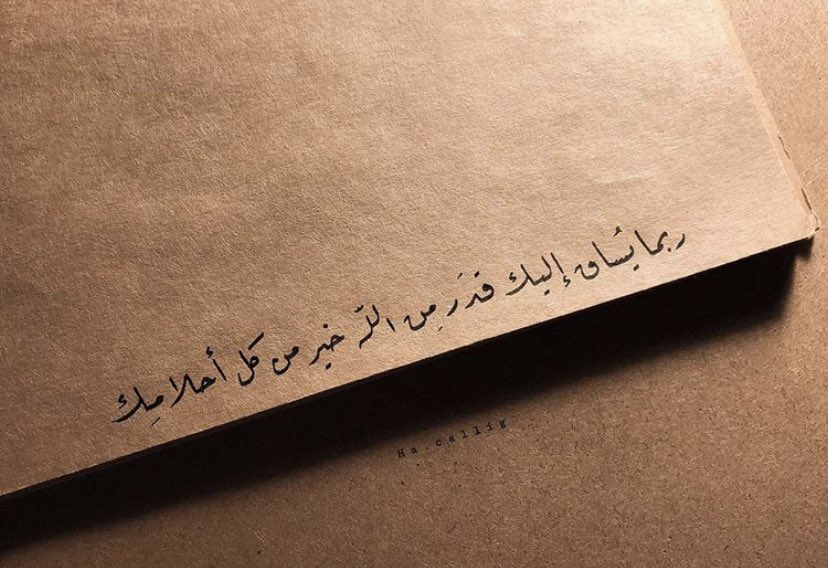 ربما يُساق إليك قدَر مِن اللّه خير من كل أحلامِك
Ha.callig